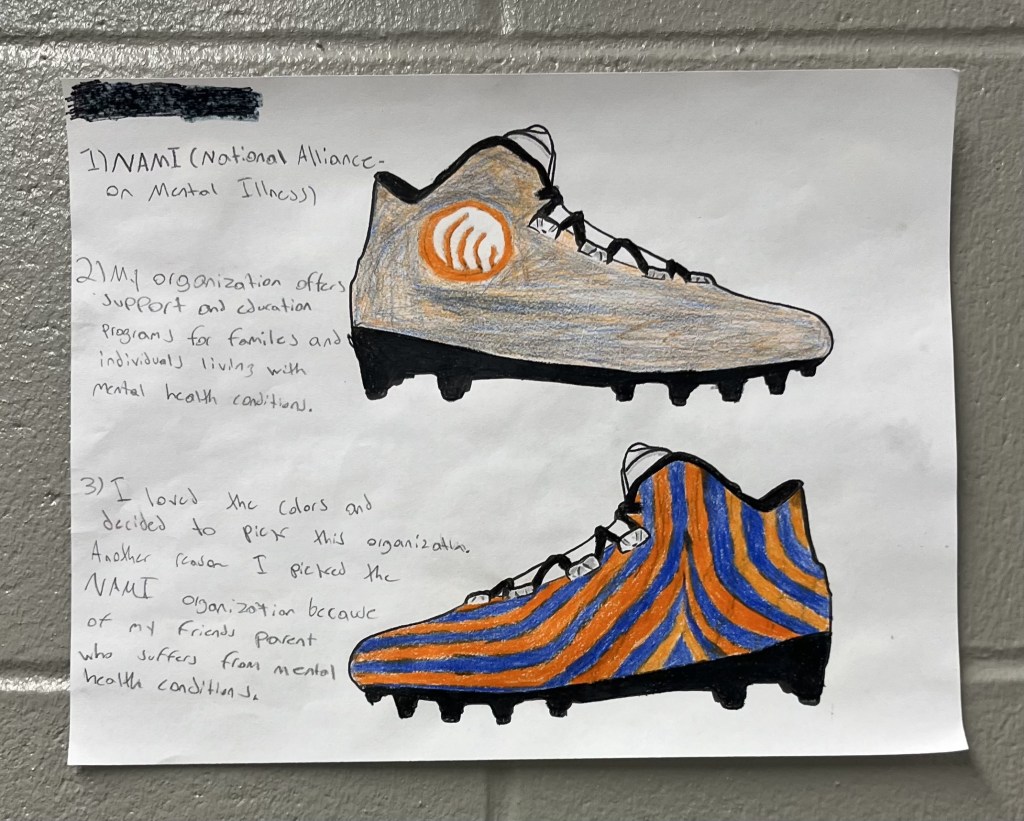 1) NAMI (National Alliance-
on Mental Illness)
2) My organization offers
support and education
programs for familes and
individuals living with
mental health conditions.
3) I loved the colors and
decided to pick this organization.
Another reason I picked the
NAMI organization because
of my friends parent
who suffers from mental
health conditions.